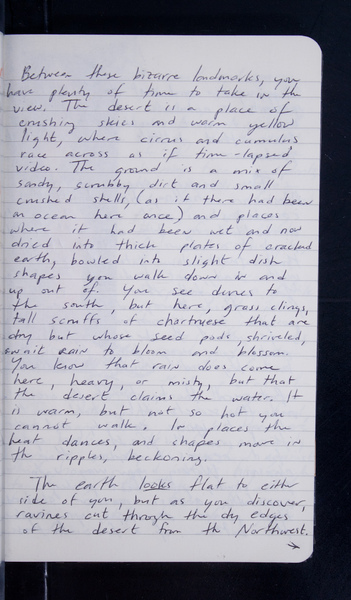 Between these bizarre landmarks, you
have plenty of time to take in the
view. The desert is a place of
crushing skies and warm yellow
light, where cirrus and cumulus
race across as if time-lapsed
video. The ground is a mix of
sandy, scrubby dirt and small
crushed shells, (as if there had been
an ocean here once) and places
where it had been wet and now
dried into thick plates of cracked
earth, bowled into slight dish
shapes you walk down in and
up out of. You see dunes to
the south, but here, grass clings,
tall scruffs of chartreuse that are
dry but whose seed pods, shriveled,
await rain to bloom and blossom.
You know that rain does come
here, heavy, or misty, but that
the desert claims the water. It
is warm, but not so hot you
cannot walk. In places the
heat dances, and shapes move in
th ripples, beckoning.
The earth looks flat to either
side of you, but as you discover,
ravines cut through the dry edges
of the desert from th Northwest.
→